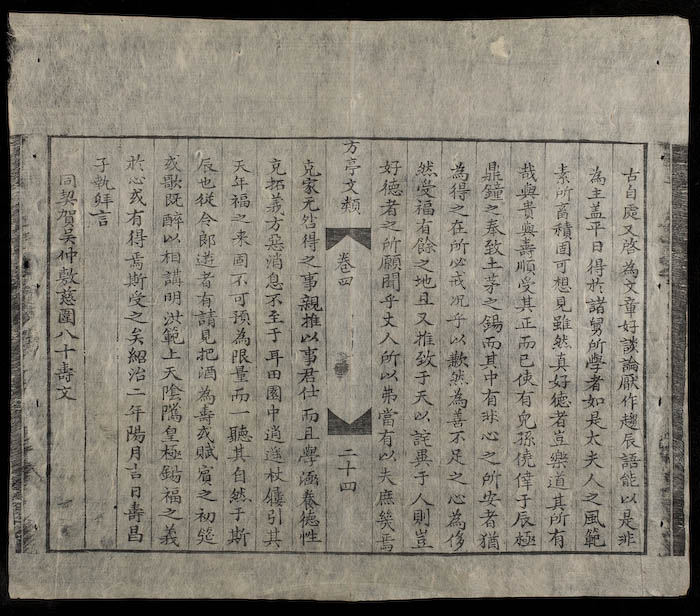 古自處又啓為文章好談論厭作趨辰語能以是非
為主盖平日得於諸舅所學者如是太夫人之風範
素所畜積固可想見雖然真好德者宜樂道其所有
哉與貴與壽順受其正而已使有兒孫僥偉于辰極
鼎鐘之奉致土茅之錫而其中有非心之所安者猶
為得之在所必戒况乎以歉然為善不足之心為侈
然受福有餘之地且又推致于天以詫異于人則豈
好德者之所願聞乎丈人所以弗當有以夫庶幾焉
方亭文類
卷四
二十四
克家无咎得之事親推以事君仕而且學涵養德性
克拓義方惡消息不至于耳田園中逍遥杖鏤引其
天年福之来固不可預為限量而一聽其自然于斯
辰也從令郎遊者有請見把酒為壽或賦賓之初筵
或歌既醉以相講明洪範上天陰隲皇極錫福之義
於心或有得焉斯受之矣紹治二年陽月吉日壽昌
子執拜言
同契賀吳仲敷慈闈八十壽文